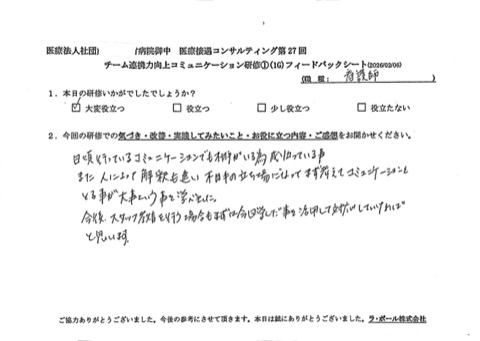 医療法人社団　　　　/病院御中　医療接遇コンサルティング第27回
チーム連携力向上コミュニケーション研修①(1G)フィードバックシート(2026/02/06)
(職種: 看護師 )
1．本日の研修いかがでしたでしょうか？
☑ 大変役立つ　□ 役立つ　□ 少し役立つ　□ 役立たない
2．今回の研修での気づき・改善・実践してみたいこと・お役に立つ内容・ご感想をお聞かせください。
日頃行っているコミュニケーションでも相手がいる為成り立っている事
また人によって解釈も違い相手の立ち場になってまず考えてコミュニケーションを
とる事が大事という事を学べました。
今後、スタッフ育を行う場合もまずは今回学んだ事を活用して対応していければ
と思います。
ご協力ありがとうございました。今後の参考にさせて頂きます。本日は誠にありがとうございました。ラ・ポール株式会社